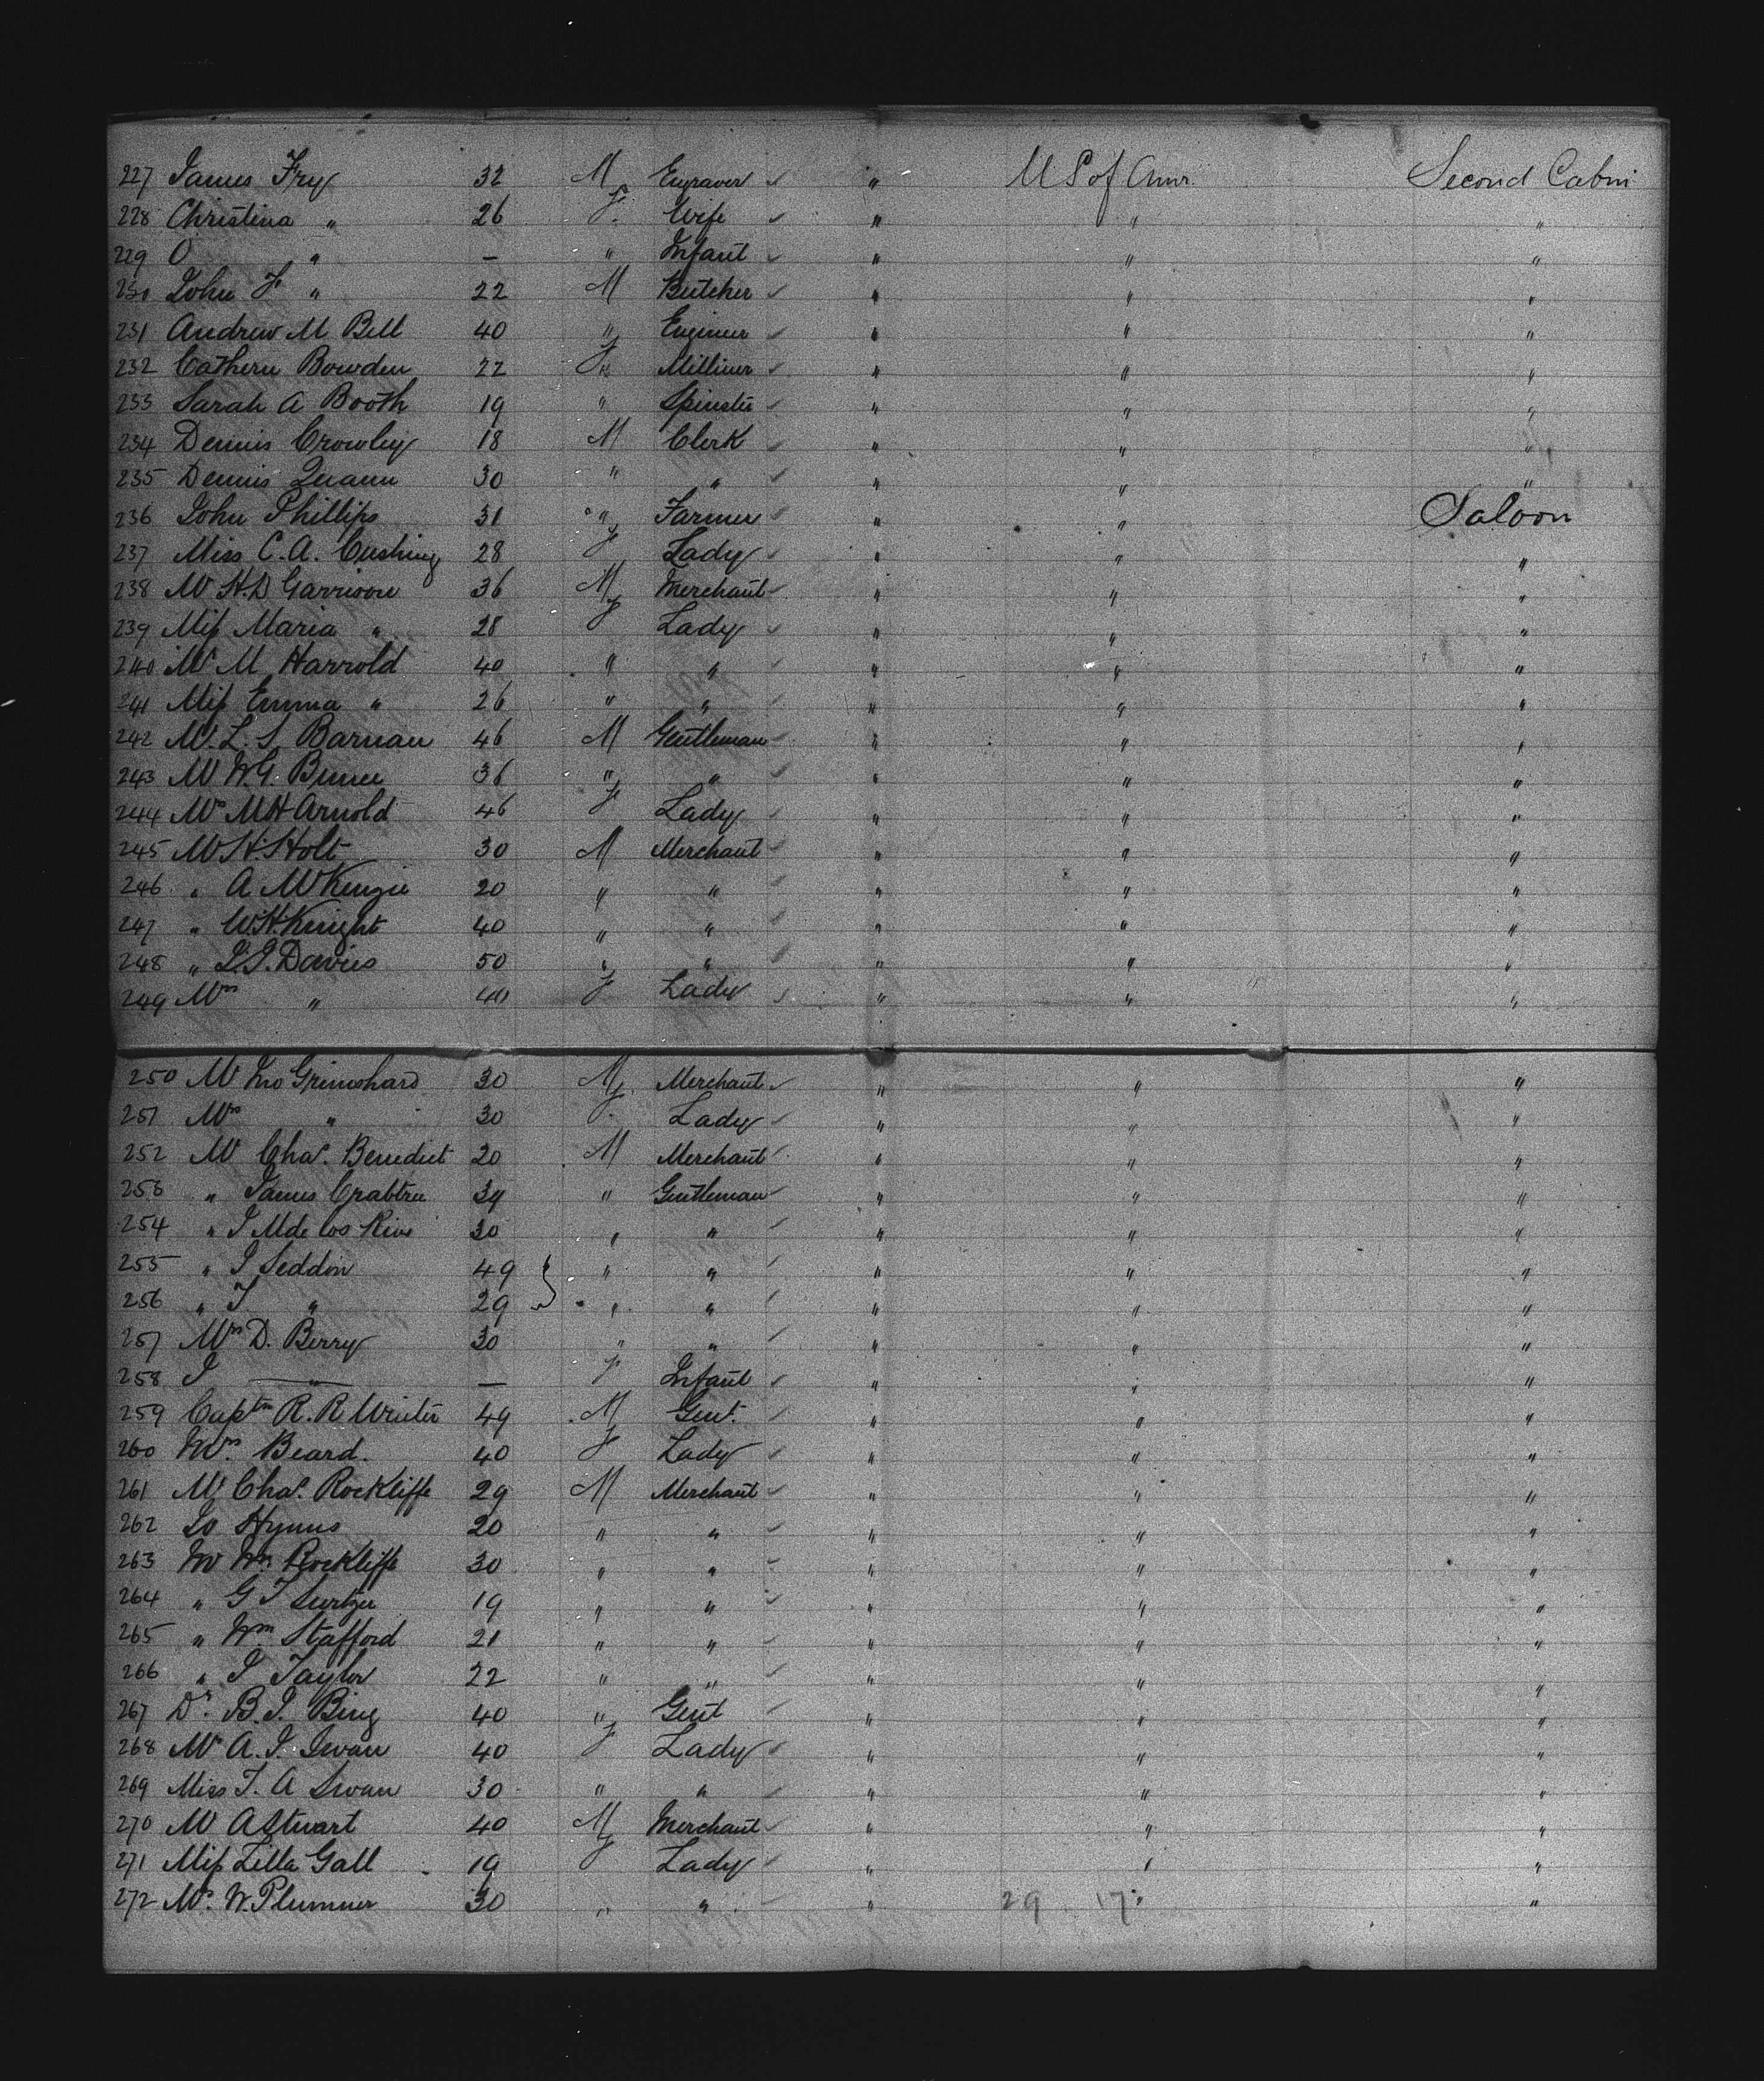 227 James Fry 32 M Engraver " U S of Amr. Second Cabin
228 Christina " 26 F. Wife " " "
229 O " — " Infant " " "
230 John F " 22 M Butcher " " "
231 Andrew M Bell 40 " Engineer " " "
232 Cathern Bowden 22 F Milliner " " "
233 Sarah A Booth 19 " Spinster " " "
234 Dennis Crowley 18 M Clerk " " "
235 Dennis 30 " " " " "
236 John Phillips 31 " Farmer " " Saloon
237 Miss C. A. Cushing 28 F Lady " " "
238 Mr H. D Garrison 36 M Merchant " " "
239 Miss Maria " 28 F Lady " " "
240 M Harrold 40 " " " " "
241 Miss Emma " 26 " " " " "
242 Mr. L. S. Barnan 46 M Gentleman " " "
243 Mr W. G. 36 " " " " "
244 Mrs M H Arnold 46 F Lady " " "
245 Mr H. Holt 30 M Merchant " " "
246 " A. McKenzie 20 " " " " "
247 " W. H. Knight 40 " " " " "
248 " Davies 50 " " " " "
249 Mrs " 40 F Lady " " "
250 Mr Jno 30 M Merchant " " "
251 Mrs " 30 F. Lady " " "
252 Mr Chas. Benedict 20 M Merchant " " "
253 " James Crabtree 34 " Gentleman " " "
254 " 30 " " " " "
255 " J Seddon 49 " " " " "
256 " T " 29 " " " " "
257 Mrs D. Berry 30 " " " " "
258 J " — F Infant " " "
259 Captn R. R Winter 49 M Gent. " " "
260 Mrs. Beard. 40 F Lady " " "
261 Mr Chas. Rockliffe 29 M Merchant " " "
262 Hynns 20 " " " " "
263 Mr Wm. Rockliffe 30 " " " " "
264 " G T 19 " " " " "
265 " Wm Stafford 21 " " " " "
266 " J Taylor 22 " " " " "
267 Dr. B. J. Bing 40 " Gent " " "
268 Mrs A. J. Swan 40 F Lady " " "
269 Miss T. A Swan 30 " " " " "
270 Mr A Stuart 40 M Merchant " " "
271 Miss Zilla Gall 19 F Lady " " "
272 Mrs. W. Plummer 30 " " " 29 17 " "